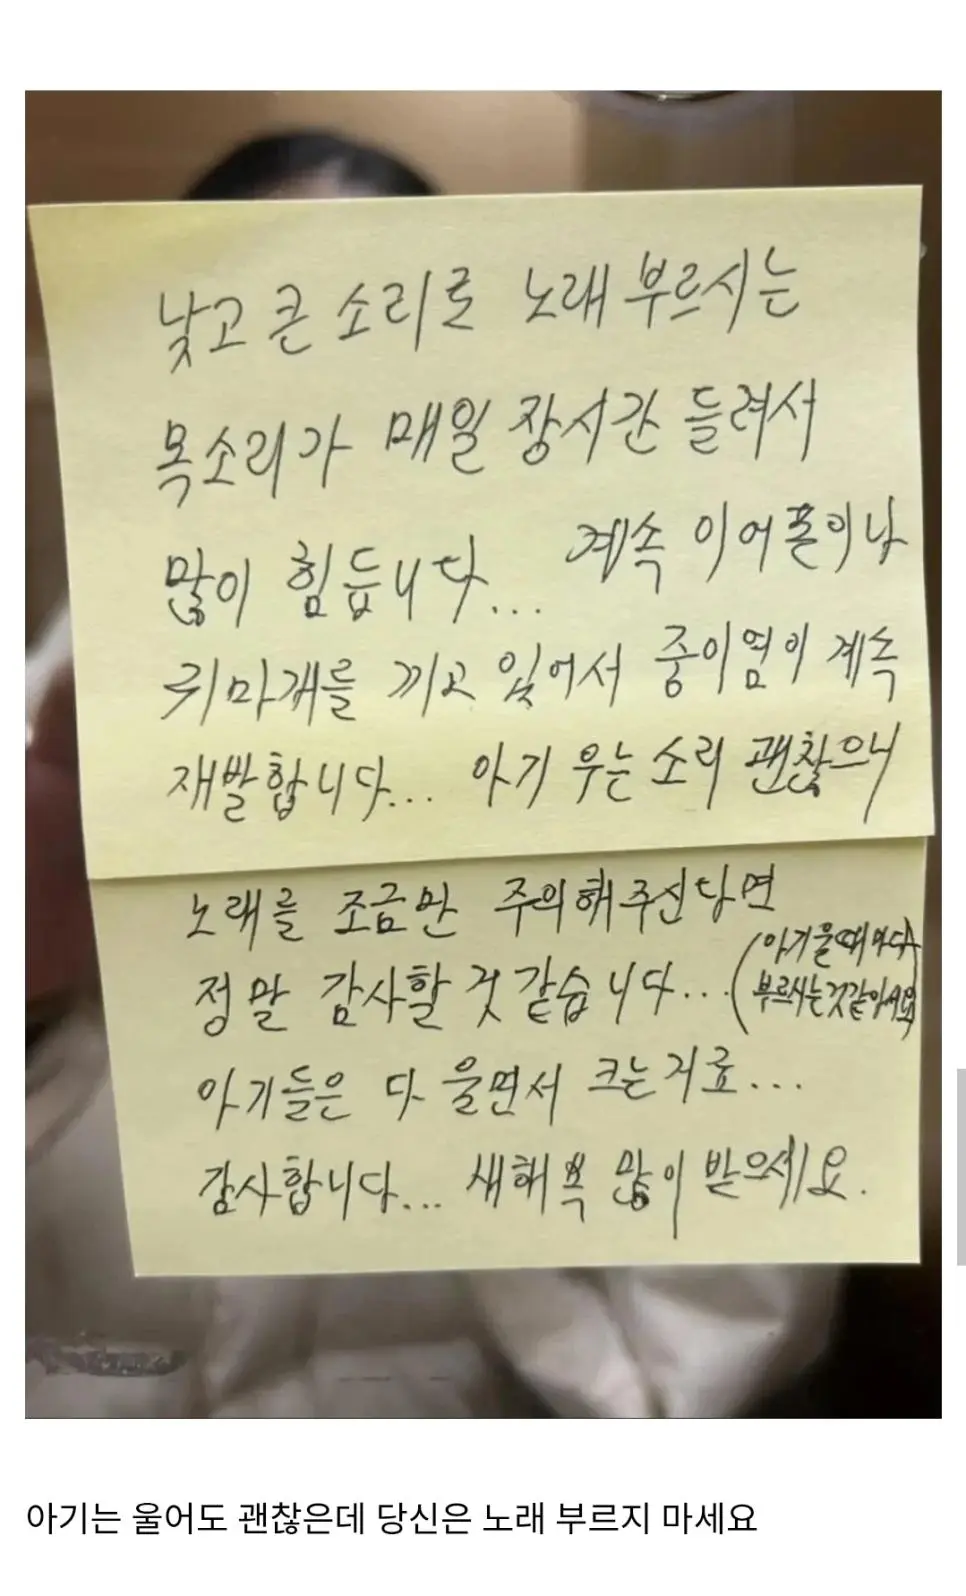 낮고 큰 소리로 노래 부르시는
목소리가 매일 장시간 들려서
많이 힘듭니다... 계속 이어폰이나
귀마개를 끼고 있어서 중이염이 계속
재발합니다... 아기 우는 소리 괜찮으니
노래를 조금만 주의해주신다면
정말 감사할 것 같습니다...
(아기울때마다
부르시는것같아서요)
아기들은 다 울면서 크는거죠...
감사합니다... 새해 복 많이 받으세요.
아기는 울어도 괜찮은데 당신은 노래 부르지 마세요